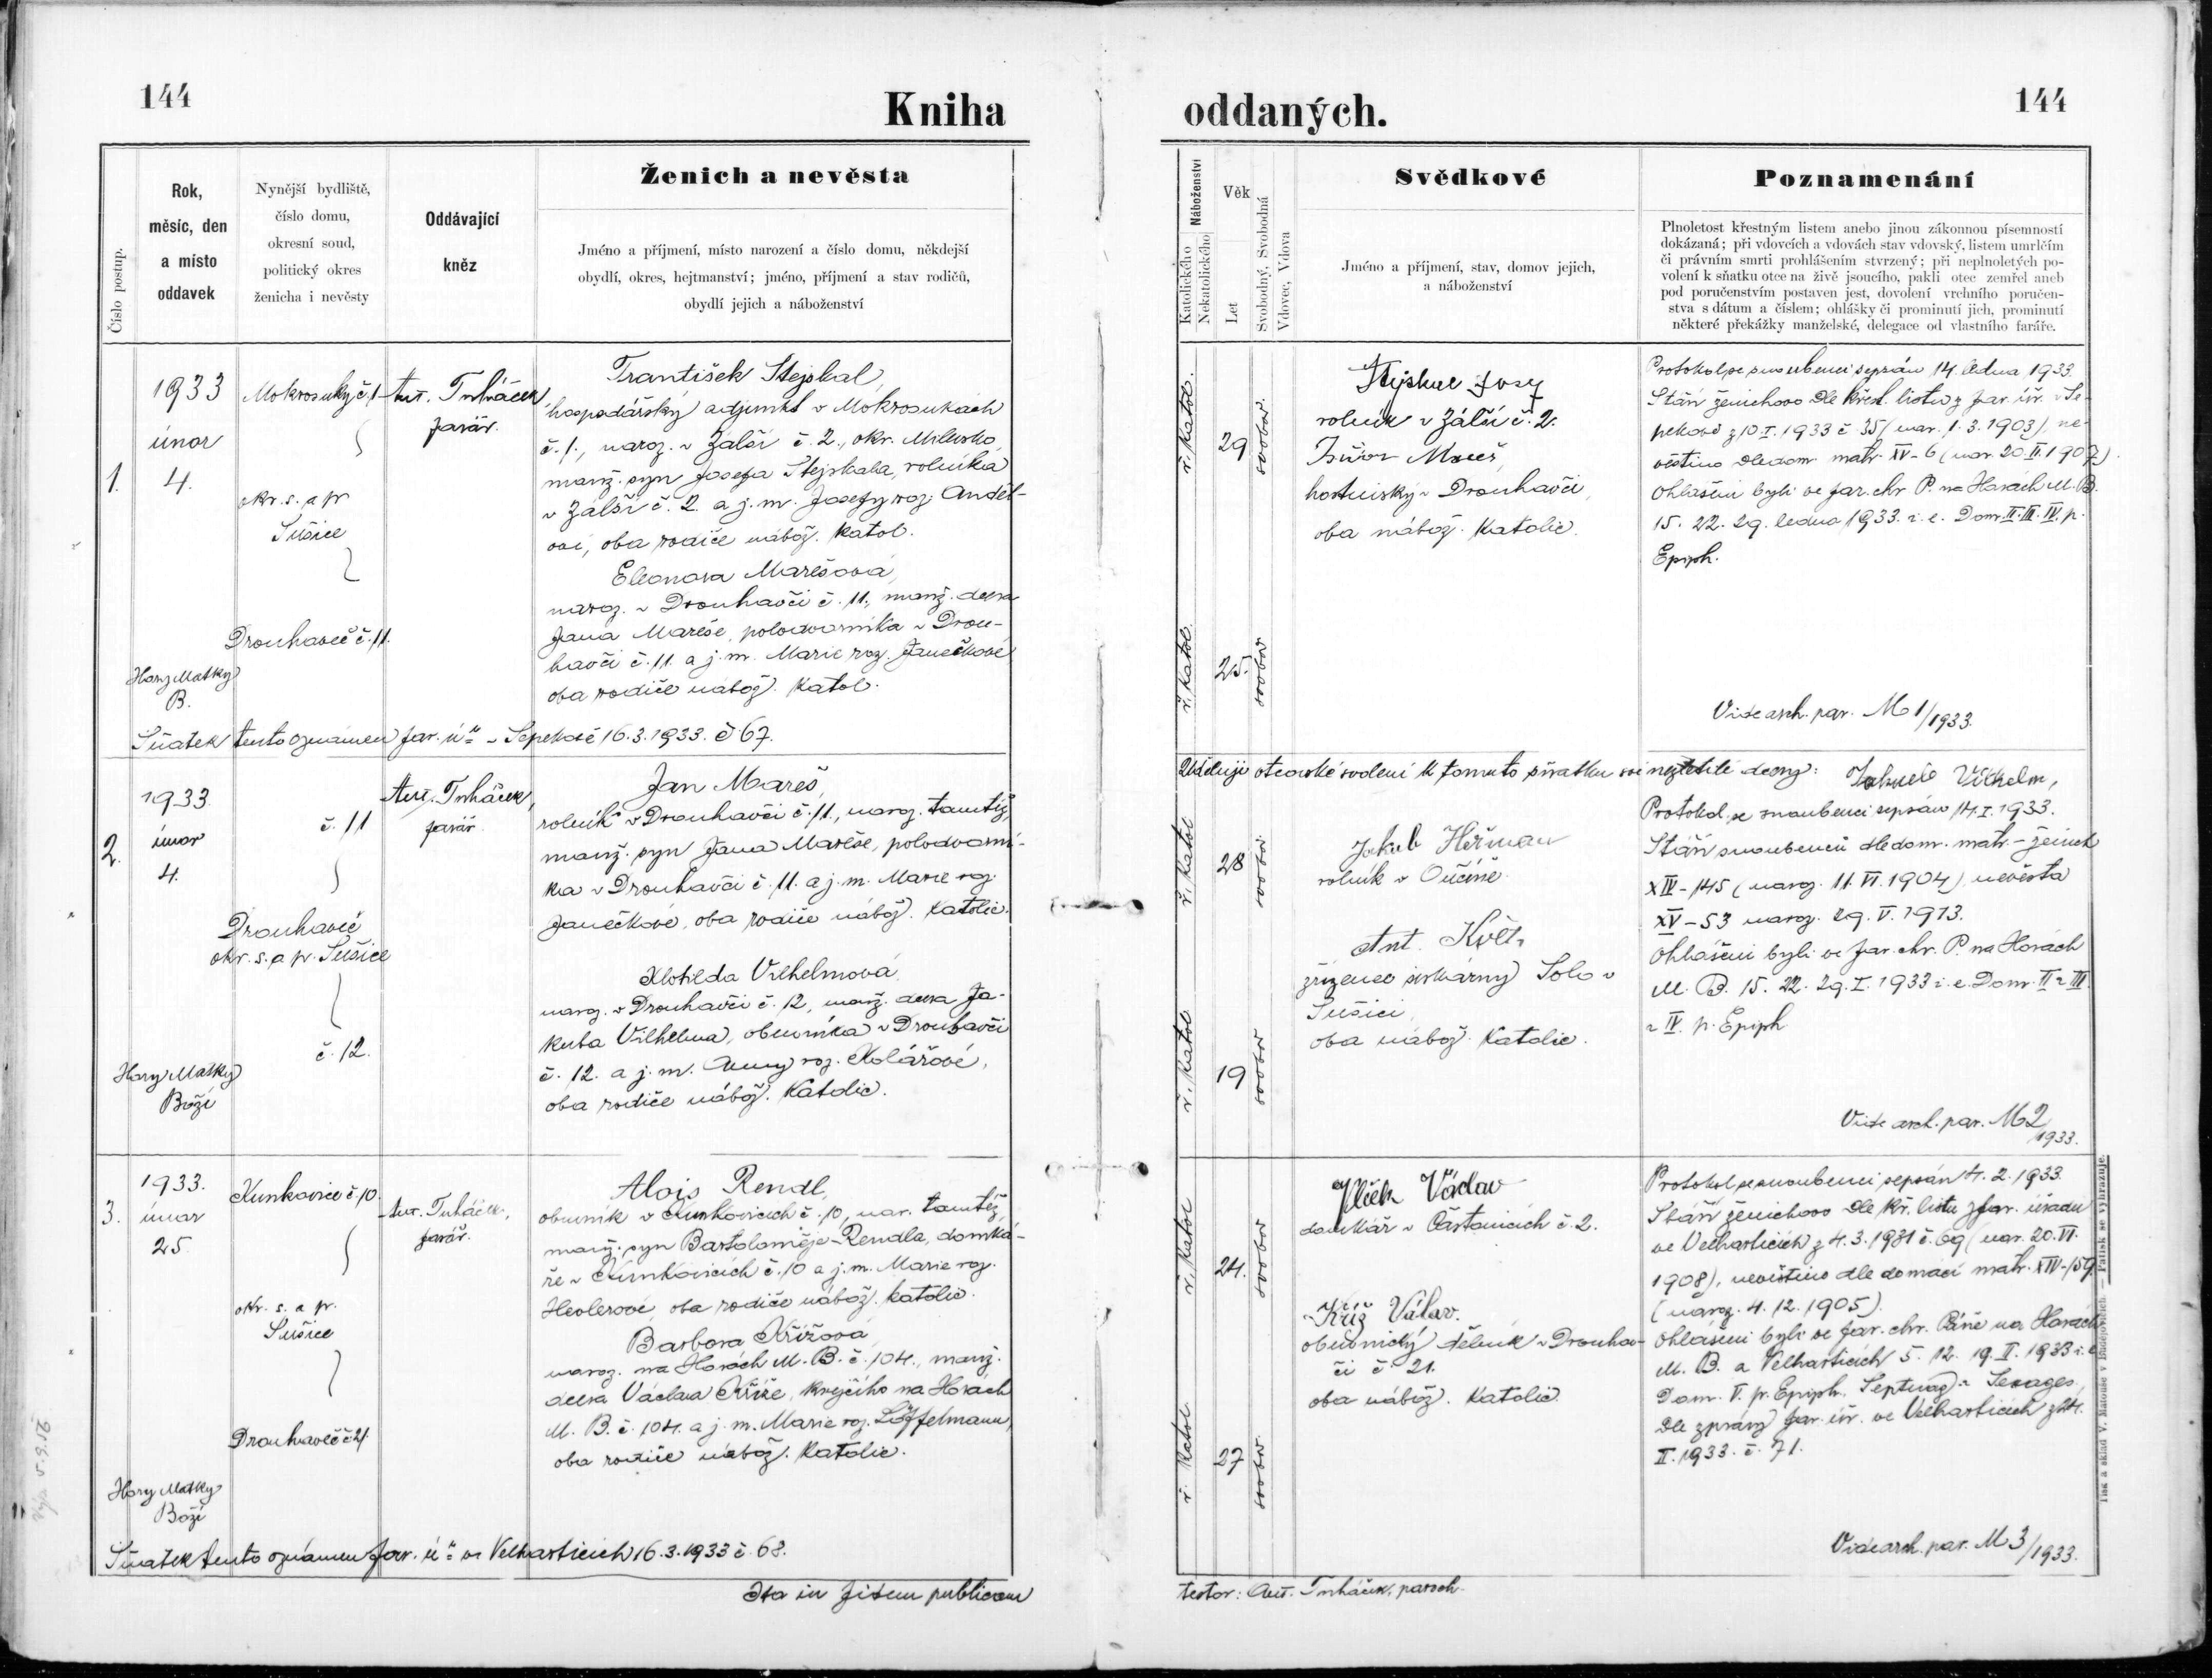 144
Kniha
oddaných.
144
Číslo postup.
Rok,
měsíc, den
a místo
oddavek
Nynější bydliště,
číslo domu,
okresní soud,
politický okres
ženicha i nevěsty
Oddávající
kněz
Ženich a nevěsta
Jméno a příjmení, místo narození a číslo domu, někdejší
obydlí, okres, hejtmanství; jméno, příjmení a stav rodičů,
obydlí jejich a náboženství
Náboženství
Katolického
Nekatolického
Věk
Let
Svobodný, Svobodná
Vdovec, Vdova
Svědkové
Jméno a příjmení, stav, domov jejich,
a náboženství
Poznamenání
Plnoletost křestným listem anebo jinou zákonnou písemností
dokázaná; při vdovcích a vdovách stav vdovský, listem umrlčím
či právním smrti prohlášením stvrzený; při neplnoletých po-
volení k sňatku otce na živě jsoucího, pakli otec zemřel aneb
pod poručenstvím postaven jest, dovolení vrchního poručen-
stva s dátum a číslem; ohlášky či prominutí jich, prominutí
některé překážky manželské, delegace od vlastního faráře.
1.
1933
únor
4.
Hory Matky
B.
Mokrosuky č. 1
okr. s. a p.
Sušice
Drouhaveč č. 11.
Ant. Trháček,
farář.
František Stejskal,
hospodářský adjunkt v Mokrosukách
č. 1., naroz. v Zálší č. 2., okr. Milevsko,
manž. syn Josefa Stejskala, rolníka
v Zálší č. 2. a j. m. Josefy roz. Anděl-
ové, oba rodiče nábož. katol.
Eleonora Marešová,
naroz. v Drouhavči č. 11., manž. dcera
Jana Mareše, polodvorníka v Drou-
havči č. 11. a j. m. Marie roz. Janečkové
oba rodiče nábož. katol.
Sňatek tento oznámen far. ú. v Sepekově 16. 3. 1933. č. 67.
ř. katol.
29
svobod.
ř. katol.
25.
svobod.
Stejskal Josef
rolník v Zálší č. 2.
Mareš,
hostinský v Drouhavči,
oba nábož. katolic.
Protokol se snoubenci sepsán 14. ledna 1933.
Stáří ženichovo dle křest. listu z far. úř. v Se-
pekově z 10. I. 1933 č. 35 (nar. 1. 3. 1903), ne-
věstino dle dom. matr. XV-6 (nar. 20. II. 1907).
Ohlášeni byli ve far. chr. P. na Horách M. B.
15. 22. 29. ledna 1933. i. e. Dom. II. III. IV. p.
Epiph.
Vide arch. par. M 1/1933.
2.
1933.
únor
4.
Hory Matky
Boží
č. 11
Drouhaveč
okr. s. a p. Sušice
č. 12.
Ant. Trháček,
farář.
Jan Mareš,
rolník v Drouhavči č. 11., naroz. tamtéž,
manž. syn Jana Mareše, polodvorní-
ka v Drouhavči č. 11. a j. m. Marie roz.
Janečkové, oba rodiče nábož. katolic.
Klotilda Vilhelmová,
naroz. v Drouhavči č. 12, manž. dcera Ja-
kuba Vilhelma, obuvníka v Drouhavči
č. 12. a j. m. Anny roz. Kolářové,
oba rodiče nábož. katolic.
ř. katol.
28
svobod.
ř. katol.
19
svobod.
Uděluji otcovské svolení k tomuto sňatku své nezletilé dcery: Jakub Vilhelm,
Jakub Heřman
rolník v
Ant. Květ,
zřízenec sirkárny Solo v
Sušici,
oba nábož. katolic.
Protokol se snoubenci sepsán 14. I. 1933.
Stáří snoubenců dle dom. matr. – ženich
XIV-145 (naroz. 11. VI. 1904), nevěsta
XV-53 naroz. 29. V. 1913.
Ohlášeni byli ve far. chr. P. na Horách
M. B. 15. 22. 29. I. 1933 i. e. Dom. II a III
a IV. p. Epiph.
Vide arch. par. M 2
1933.
3.
1933.
únor
25.
Hory Matky
Boží
Kunkovice č. 10.
okr. s. a p.
Sušice
Drouhaveč č. 21.
Ant. Trháček,
farář.
Alois Rendl,
obuvník v Kunkovicích č. 10, nar. tamtéž,
manž. syn Bartoloměje Rendla, domká-
ře v Kunkovicích č. 10 a j. m. Marie roz.
oba rodiče nábož. katolic.
Barbora Křížová,
naroz. na Horách M. B. č. 104., manž.
dcera Václava Kříže, krejčího na Horách
M. B. č. 104. a j. m. Marie roz. Löffelmann,
oba rodiče nábož. katolic.
Sňatek tento oznámen far. ú. ve Velharticích 16. 3. 1933 č. 68.
Ita in fidem publicam
ř. katol
24.
svobod
ř. katol.
27
svobod.
Vlček Václav
domkář v Částanicích č. 2.
Kříž Václav.
obuvnický dělník v Drouhav-
či č. 21.
oba nábož. katolic.
Protokol se snoubenci sepsán 4. 2. 1933.
Stáří ženichovo dle kř. listu z far. úřadu
ve Velharticích z 4. 3. 1931 č. 69 (nar. 20. VI.
1908), nevěstino dle domácí matr. XIV-159
(naroz. 4. 12. 1905).
Ohlášeni byli ve far. chr. Páně na Horách
M. B. a Velharticích 5. 12. 19. II. 1933 i. e.
Dom. V. p. Epiph., Septuag. a Sexages.
Dle zprávy far. úř. ve Velharticích z
II. 1933. č. 71.
Vide arch. par. M 3/1933.
testor: Ant. Trháček, paroch.
Tisk a sklad V. Matouše v Budějovicích. — Patisk se vyhrazuje.